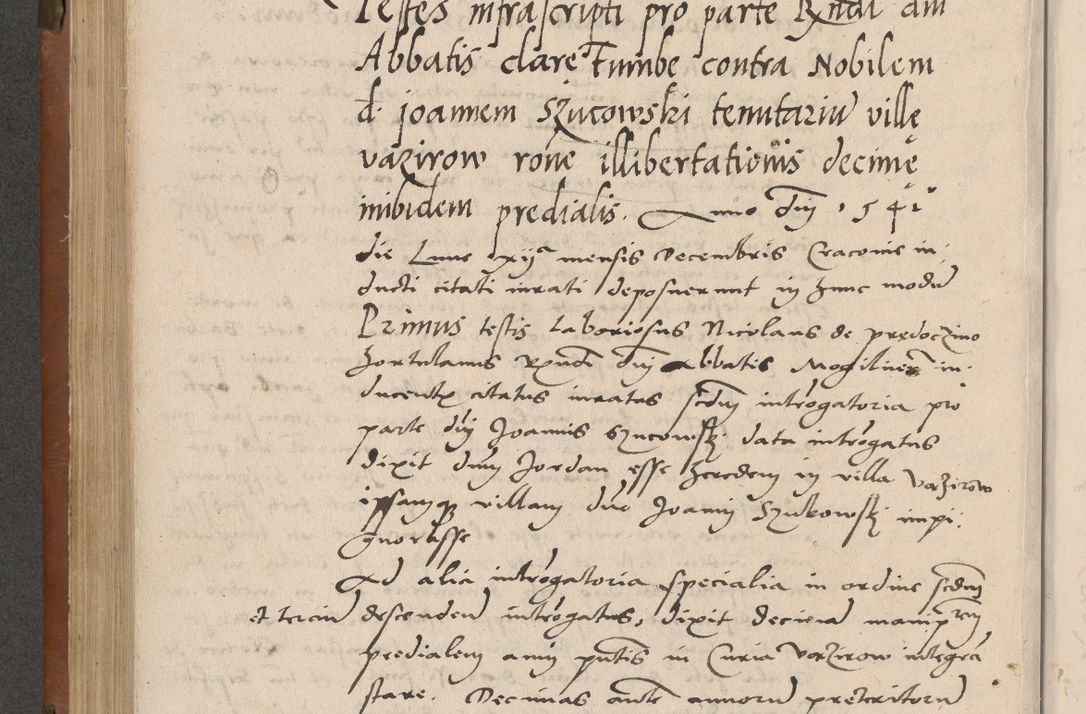 Testes infrascripti pro parte Rndi dni
Abbatis clare Tumbe contra Nobilem
d. joannem Szucowski tenutariu ville
vazirow rone illibertationis decime
inibidem predialis. Anno dni 1541
die Lune xija mensis Decembris Cracovie in
ducti citati iurati deposuerunt in hunc modu
Primus testis Laboriosus Nicolaus de predoczino
hortulanus Rndi dni Abbatis Mogilnen in
ducentis citatus iuratus scdm introgatoria pro
parte dni Joannis Szucowski data introgatus
dixit dnm Jordan esse heredem in villa Vazirow
ipsamq villam dno Joanni Szukowski impi
gnorasse
Ad alia introgatoria specialia in ordine scdm
et terciu descendendo introgatus, dixit decima
predialem anni pntis in Curia Vazirow integra
stare. Decimas aute annoru preteritoru